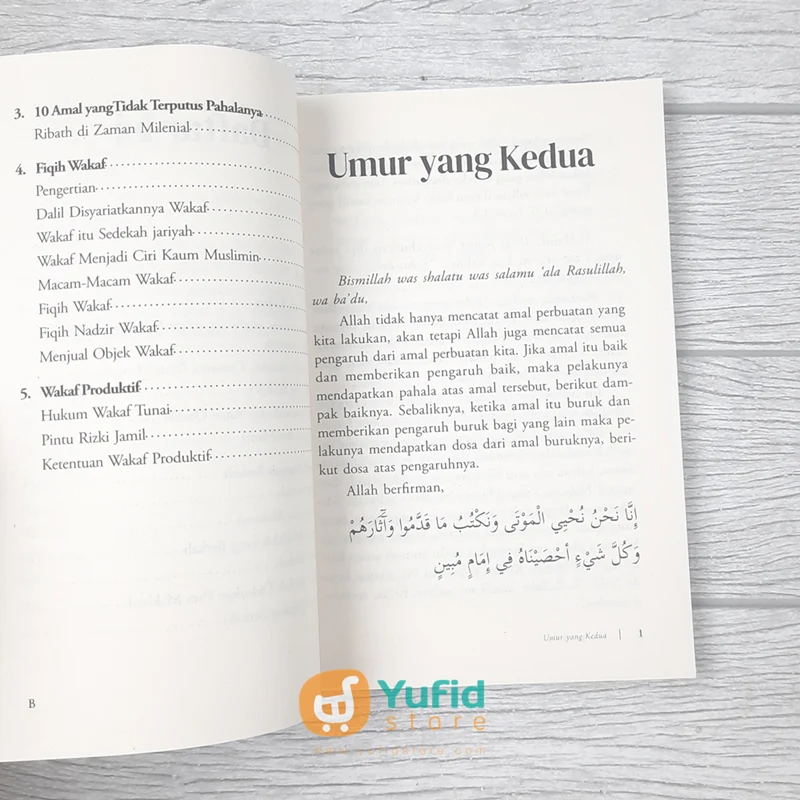 3. 10 Amal yang Tidak Terputus Pahalanya
Ribath di Zaman Milenial
4. Fiqih Wakaf
Pengertian
Dalil Disyariatkannya Wakaf
Wakaf itu Sedekah jariyah
Wakaf Menjadi Ciri Kaum Muslimin
Macam-Macam Wakaf
Fiqih Wakaf
Fiqih Nadzir Wakaf
Menjual Objek Wakaf
5. Wakaf Produktif
Hukum Wakaf Tunai
Pintu Rizki Jamil
Ketentuan Wakaf Produktif
B
Umur yang Kedua
Bismillah was shalatu was salamu 'ala Rasulillah,
wa ba'du,
Allah tidak hanya mencatat amal perbuatan yang
kita lakukan, akan tetapi Allah juga mencatat semua
pengaruh dari amal perbuatan kita. Jika amal itu baik
dan memberikan pengaruh baik, maka pelakunya
mendapatkan pahala atas amal tersebut, berikut dam-
pak baiknya. Sebaliknya, ketika amal itu buruk dan
memberikan pengaruh buruk bagi yang lain maka pe-
lakunya mendapatkan dosa dari amal buruknya, beri-
kut dosa atas pengaruhnya.
Allah berfirman,
إِنَّا نَحْنُ نُحْيِي الْمَوْتَى وَنَكْتُبُ مَا قَدَّمُوا وَآثَارَهُمْ
وَكُلَّ شَيْءٍ أحْصَيْنَاهُ فِي إِمَامٍ مُبِينٍ
Umur yang Kedua | 1
Yufid
store